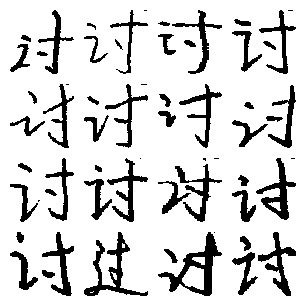 讨讨讨讨
讨讨讨讨
讨讨讨讨
讨讨讨